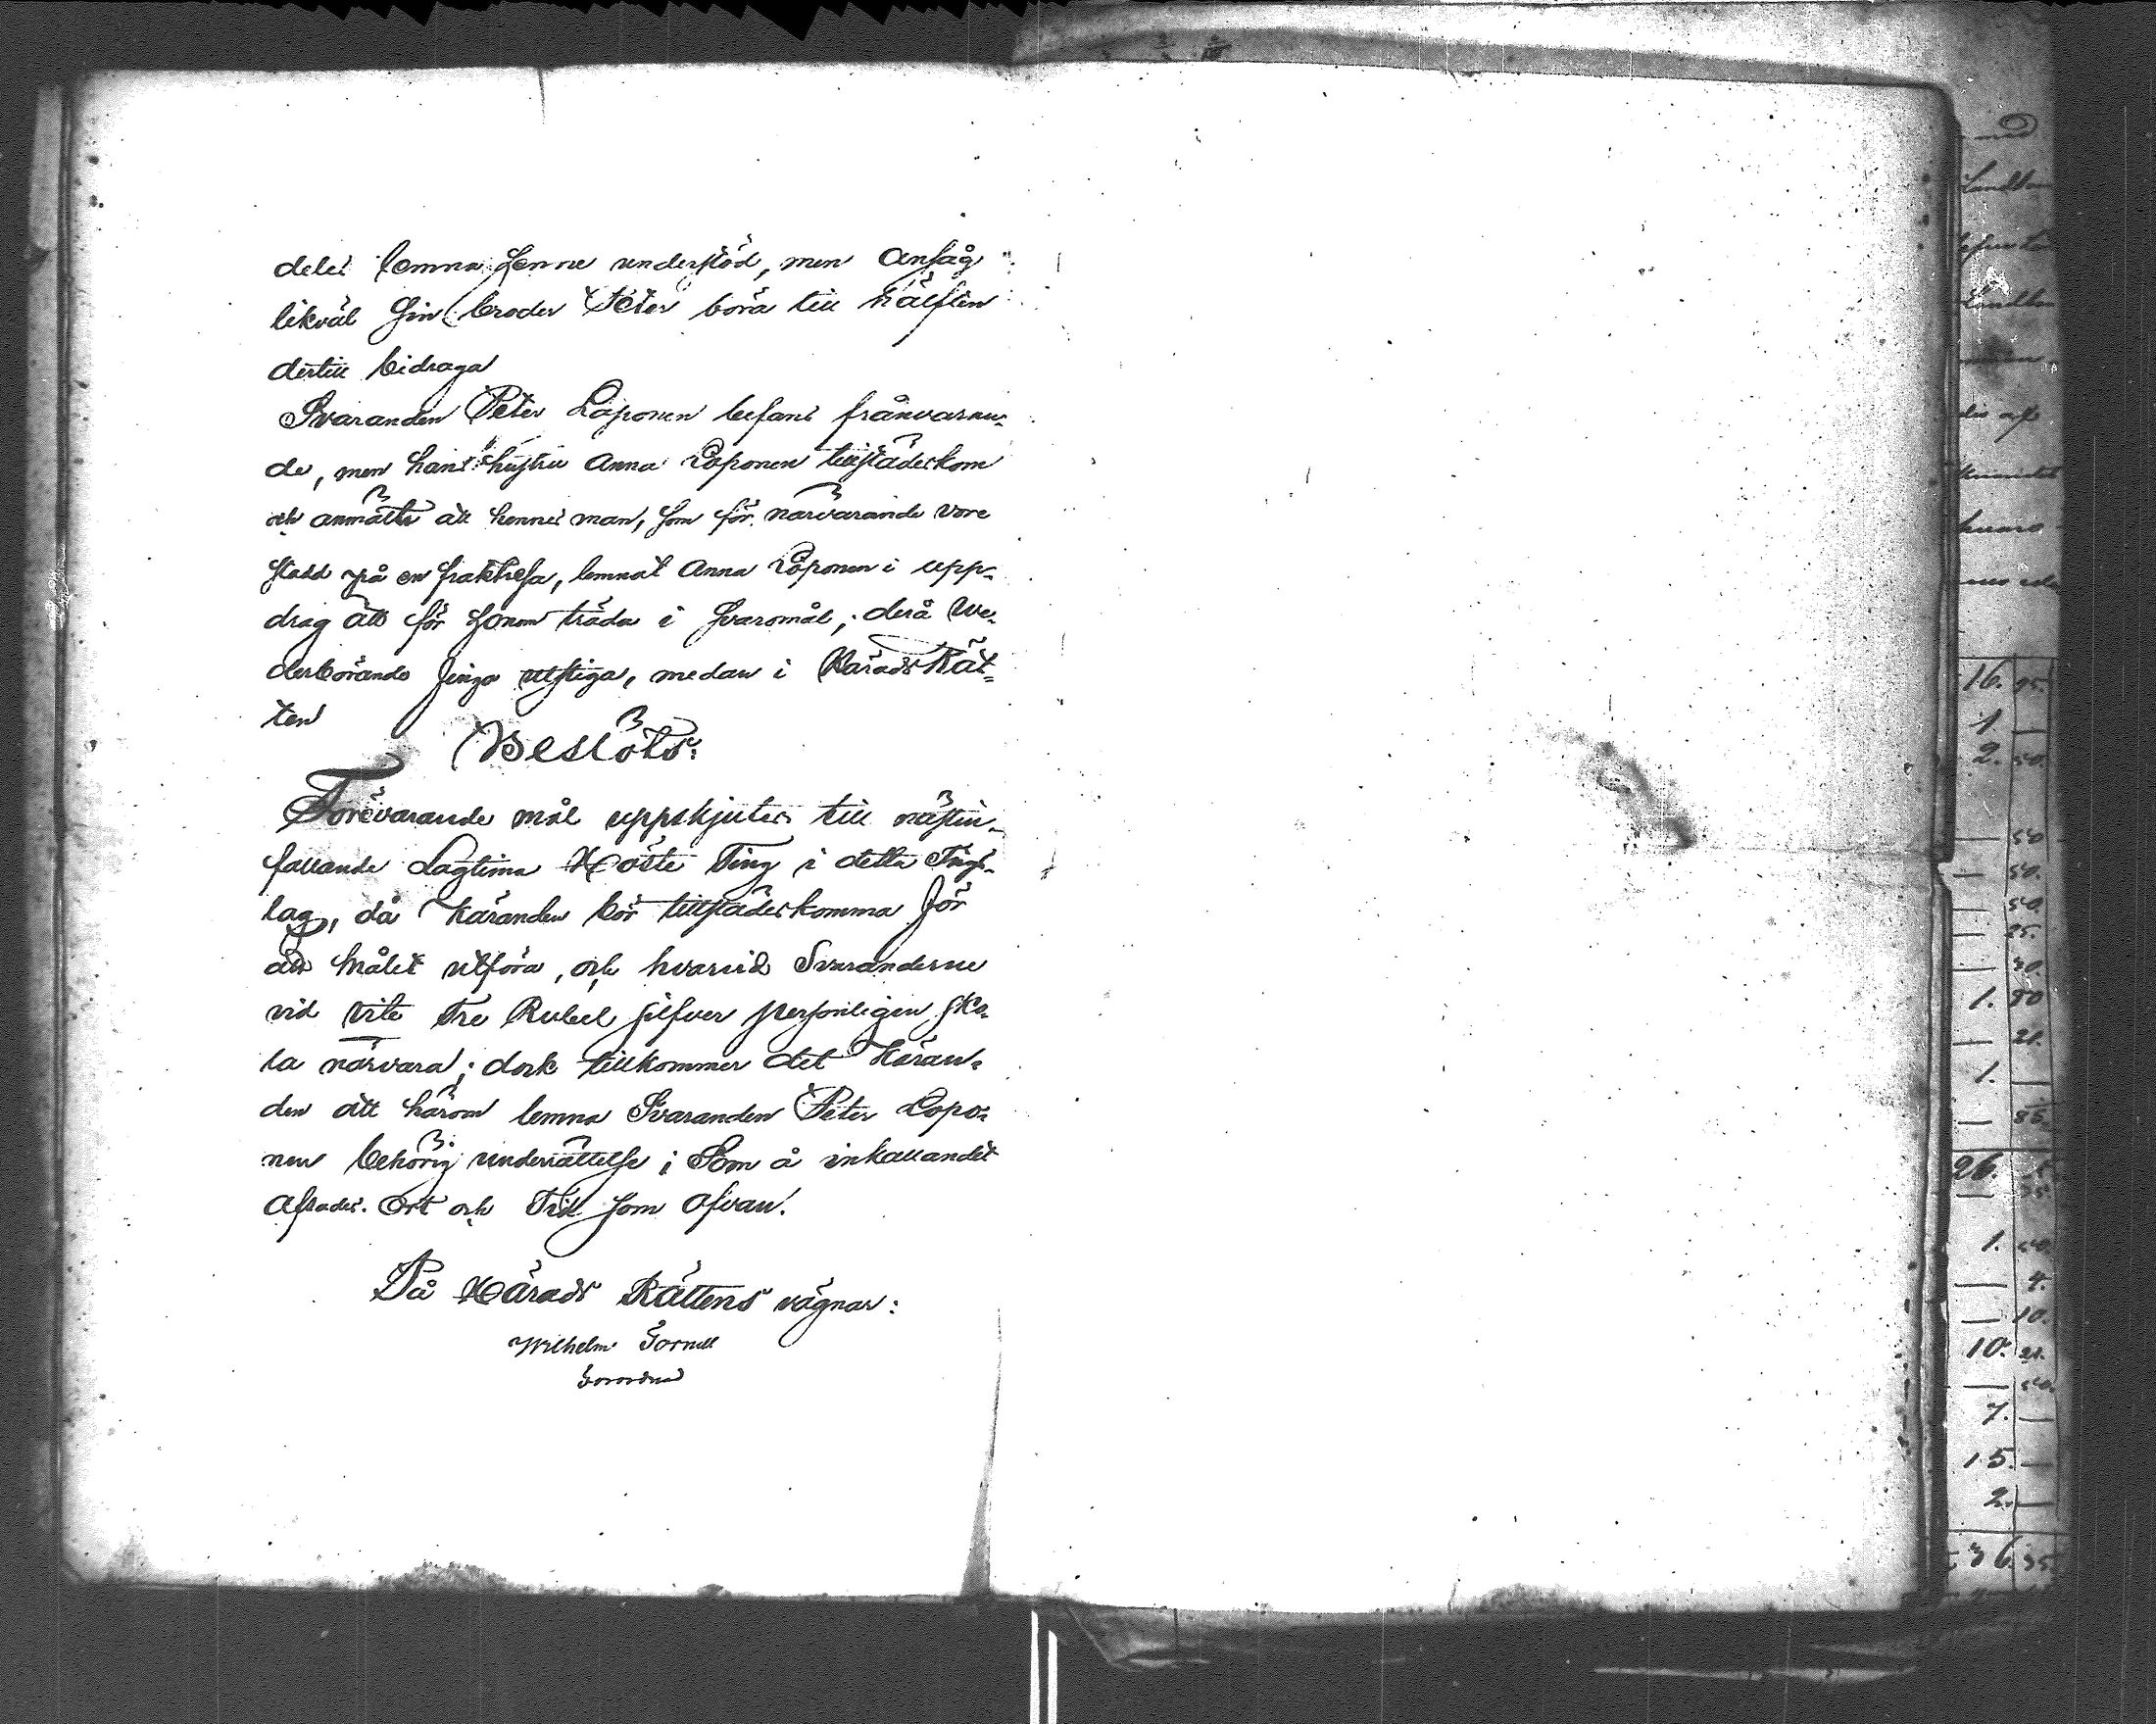 deles lemna henne understöd, men ansåg
likväl sin broder Peter böra till hälften
dertill bidraga
Svaranden Peter Loponen befans frånvaran-
de, men hans hustru Anna Loponen tillstädeskom
och anmälte att hennes man, som för närvarande vore
stadd på en fraktresa, lemnat Anna Loponen i upp-
drag att för honom träda i svaromål; derå We-
derbörande fingo utstiga, medan i HäradsRät-
ten
Beslöts:
Förevarande mål uppskjutes till nästin-
fallande Lagtima Höste Ting i detta Tings-
lag, då Käranden bör tillstädeskomma för
att målet utföra, och hvarvid Svaranderne
vid vite Tre Rubel silfver personligen sko-
la närvara; dock tillkommer det Käran-
den att härom lemna Svaranden Peter Lopo-
nen behörig underrättelse; Som å inkallandet
afsades. Ort och Tid som ofvan.
På Härads Rättens vägnar:
Wilhelm
16. 95.
1 —
2. 50.
— 50
— 50.
— 50.
— 25.
— 30.
1. 80
— 21.
1. —
— 85.
26.
1. 50.
— 4.
— 10.
10. 21.
— 50.
7. —
15. —
2. —
36. 35